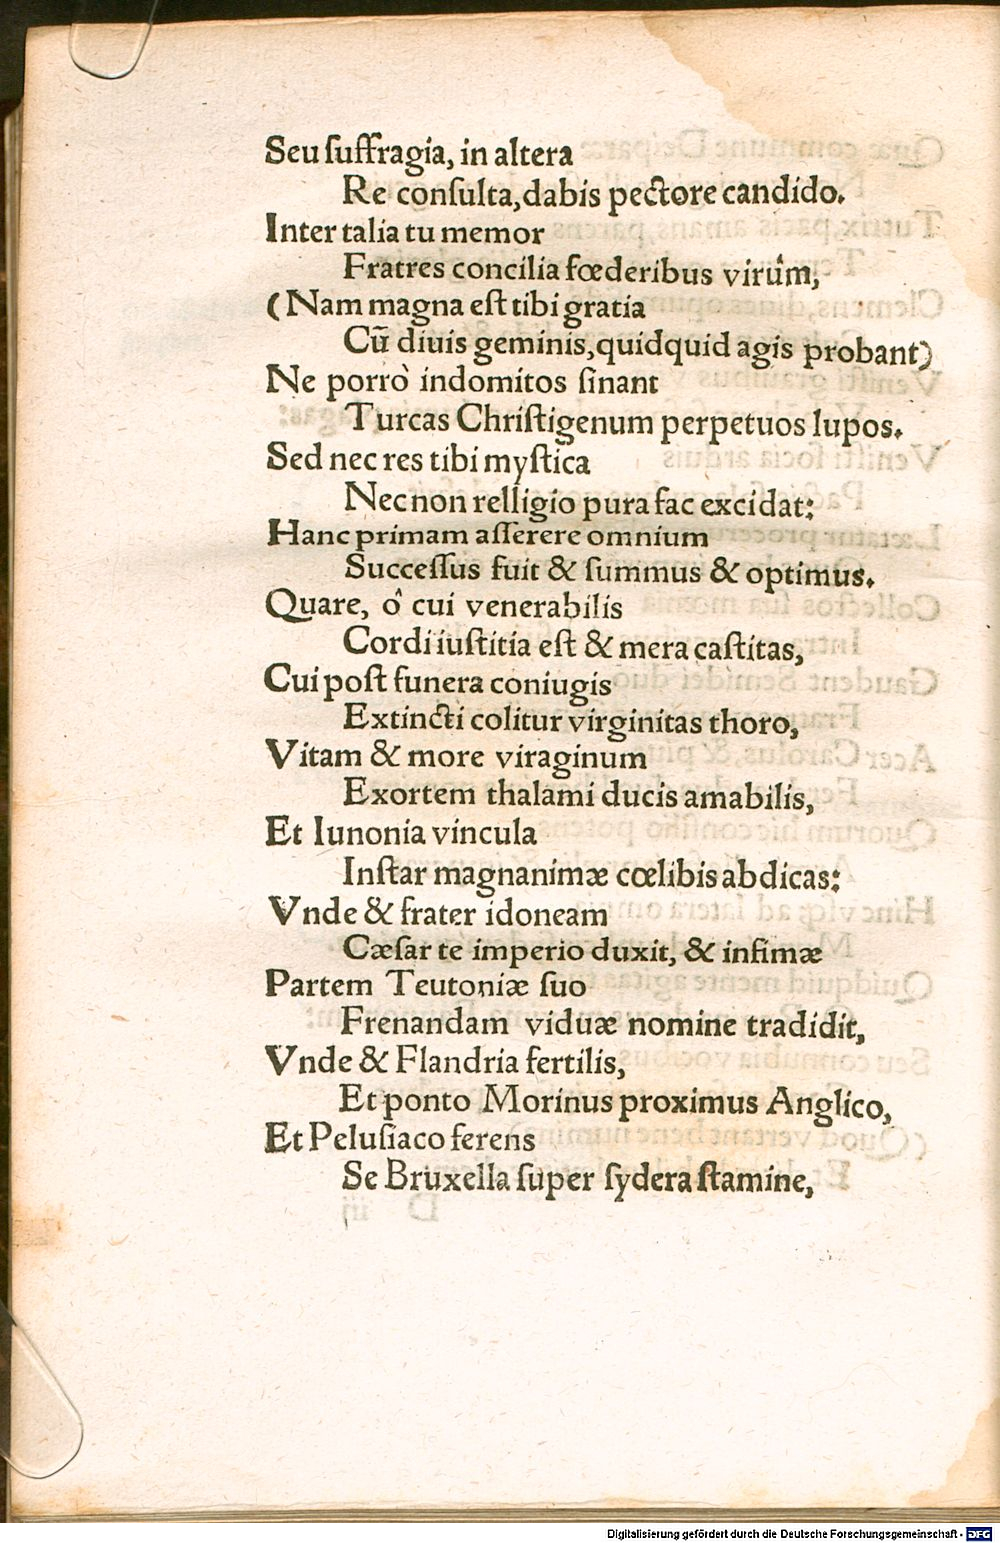 Seu ſuffragia, in altera
Re conſulta, dabis pectore candido.
Inter talia tu memor
Fratres concilia fœderibus virûm,
(Nam magna eſt tibi gratia
Cū diuis geminis, quidquid agis probant)
Ne porrò indomitos ſinant
Turcas Chriſtigenum perpetuos lupos.
Sed nec res tibi myſtica
Nec non relligio pura fac excidat:
Hanc primam aſſerere omnium
Succeſſus fuit & ſummus & optimus.
Quare, ô cui venerabilis
Cordi iuſtitia eſt & mera caſtitas,
Cui poſt funera coniugis
Extincti colitur virginitas thoro,
Vitam & more viraginum
Exortem thalami ducis amabilis,
Et Iunonia vincula
Inſtar magnanimæ cœlibis abdicas:
Vnde & frater idoneam
Cæſar te imperio duxit, & infimæ
Partem Teutoniæ ſuo
Frenandam viduæ nomine tradidit,
Vnde & Flandria fertilis,
Et ponto Morinus proximus Anglico,
Et Peluſiaco ferens
Se Bruxella ſuper ſydera ſtamine,
Digitalisierung gefördert durch die Deutsche Forschungsgemeinschaft - DFG